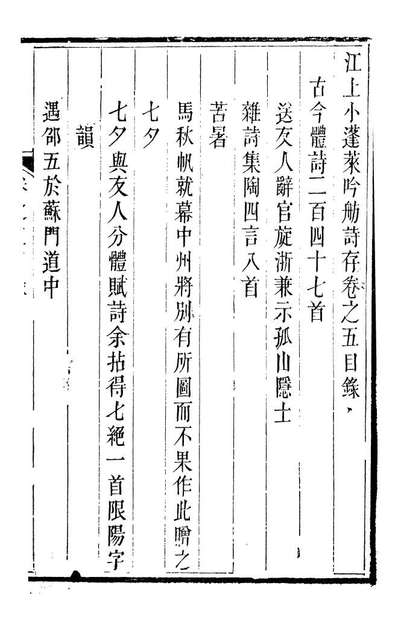 江上小蓬萊吟舫詩存卷之五目錄
古今體詩二百四十七首
送友人辭官旋浙兼示孤山隱士
雜詩集陶四言八首
苦暑
馬秋帆就幕中州將別有所圖而不果作此贈之
七夕
七夕與友人分體賦詩余拈得七絕一首限陽字
韻
遇邵五於蘇門道中